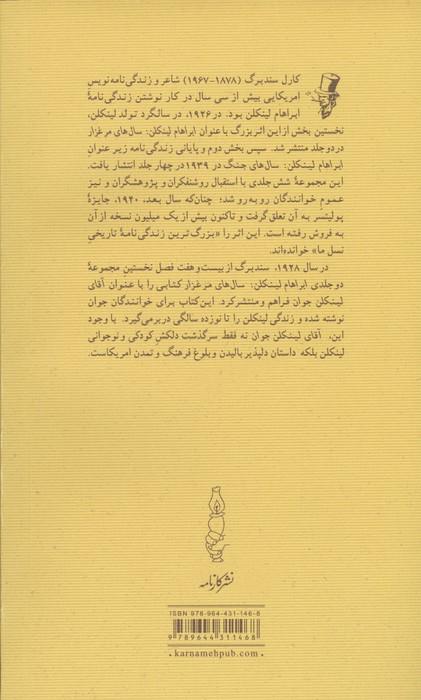 کارل سندبرگ (۱۸۷۸-۱۹۶۷) شاعر و زندگی‌نامه‌نویس
امریکایی بیش از سی سال در کار نوشتن زندگی‌نامهٔ
ابراهام لینکلن بود. در ۱۹۲۶، در سالگرد تولد لینکلن،
نخستین بخش از این اثر بزرگ با عنوان ابراهام لینکلن: سال‌های مرغزار
در دو جلد منتشر شد. سپس بخش دوم و پایانی زندگی‌نامه زیر عنوان
ابراهام لینکلن: سال‌های جنگ در ۱۹۳۹ در چهار جلد انتشار یافت.
این مجموعهٔ شش جلدی با استقبال روشنفکران و پژوهشگران و نیز
عموم خوانندگان رو به رو شد؛ چنان‌که سال بعد، ۱۹۴۰، جایزهٔ
پولیتسر به آن تعلق گرفت و تاکنون بیش از یک میلیون نسخه از آن
به فروش رفته است. این اثر را «بزرگ‌ترین زندگی‌نامهٔ تاریخیِ
نسل ما» خوانده‌اند.
در سال ۱۹۲۸، سندبرگ از بیست و هفت فصل نخستین مجموعهٔ
دو جلدی ابراهام لینکلن: سال‌های مرغزار کتابی را با عنوان آقای
لینکلن جوان فراهم و منتشر کرد. این کتاب برای خوانندگان جوان
نوشته شده و زندگی لینکلن را تا نوزده سالگی در بر می‌گیرد. با وجود
این، آقای لینکلن جوان نه فقط سرگذشت دلکش کودکی و نوجوانی
لینکلن بلکه داستان دلپذیر بالیدن و بلوغ فرهنگ و تمدن امریکاست.
نشر کارنامه
ISBN 978-964-431-146-8
9 789644 311468
karnamehpub.com